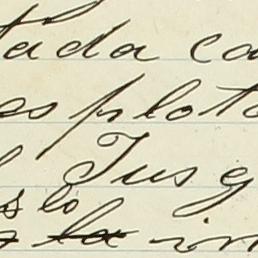 tada ca
es plota
Jus g
slo
la in